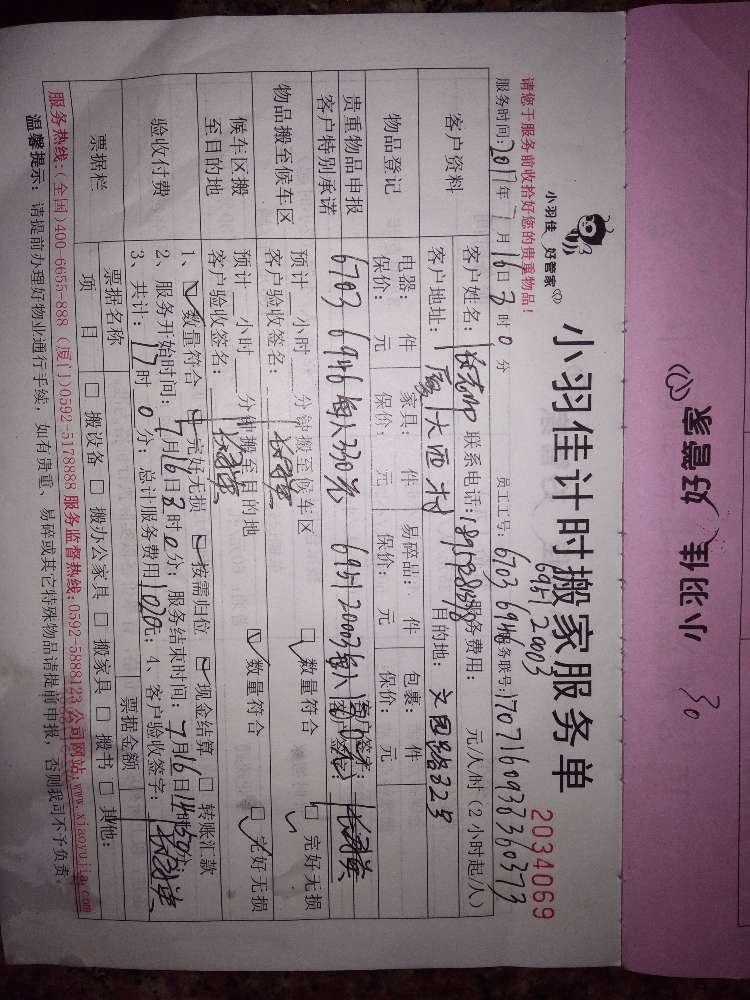 小羽佳 好管家
30
小羽佳 好管家
小羽佳计时搬家服务单
2034069
请您于服务前收拾好您的贵重物品!
6951 20003
服务时间:2017年7月16日8时0分 员工工号:6703 6946 服务联号:1707160938360373
客户资料
客户姓名: 联系电话: 服务费用: 元/人/时(2小时起/人)
客户地址:厦大西村 目的地:文园路323
物品登记
电器: 件 家具: 件 易碎品: 件 包裹: 件
保价: 元 保价: 元 保价: 元 保价: 元
贵重物品申报
客户特别承诺
6703 6946 每人330元 6951 20003 每人 客户签字:
物品搬至候车区
预计 小时 分钟搬至候车区 数量符合 完好无损
客户验收签名:
候车区搬
至目的地
预计 小时 分钟搬至目的地 数量符合 完好无损
客户验收签名:
验收付费
1、数量符合 完好无损 按需归位 现金结算 转账汇款
2、服务开始时间:7月16日8时0分;服务结束时间:7月16日14时50分;
3、共计:17时0分;总计服务费用1020元;4、客户验收签字:
票据栏
票据名称 票据金额
项 目 搬设备 搬办公家具 搬家具 搬书 其他:
服务热线:(全国)400-6655-888 (厦门)0592-5178888 服务监督热线:0592-5888123 公司网站:www.xiaoyujia.com
温馨提示:请提前办理好物业通行手续,如有贵重、易碎或其它特殊物品请提前申报,否则我司不予负责。